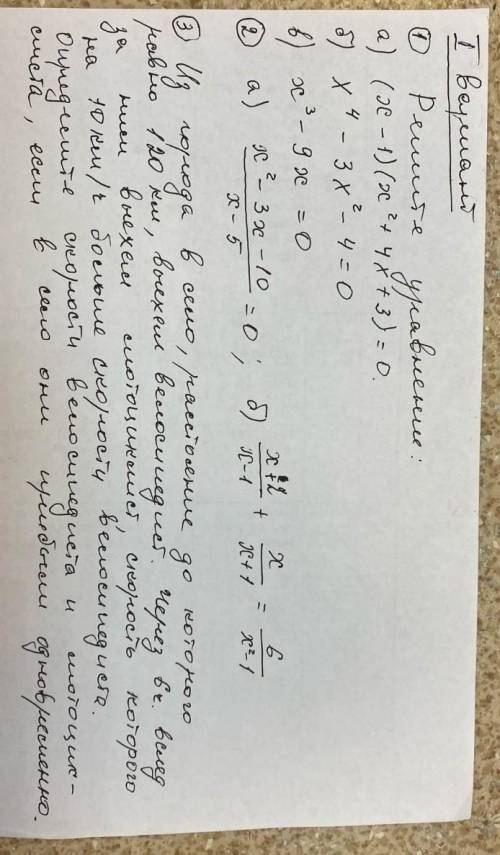 I вариант
① Решите уравнение:
а) (x-1)(x²+4x+3)=0.
б) x⁴-3x²-4=0
в) x³-9x=0
② а) (x²-3x-10)/(x-5)=0; б) (x+2)/(x-1) + x/(x+1) = 6/(x²-1)
③ Из города в село, расстояние до которого
равно 120 км, выехал велосипедист. Через 6ч. вслед
за ним выехал мотоциклист, скорость которого
на 10км/ч больше скорости велосипедиста.
Определите скорости велосипедиста и мотоцик-
листа, если в село они прибыли одновременно.